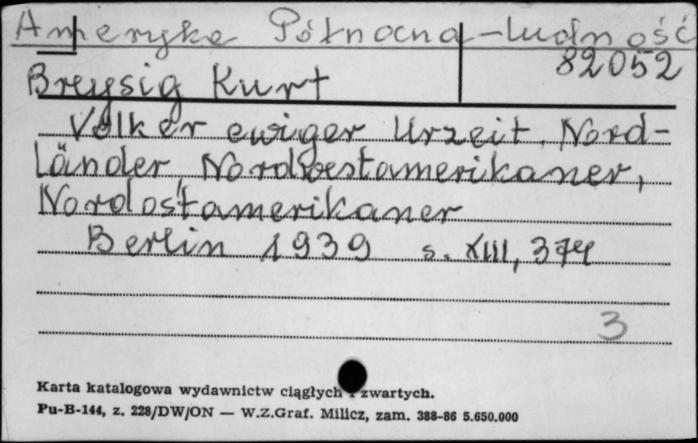 Ameryka Północna – ludność
82052
Breysig Kurt
Völker ewiger Urzeit, Nord-
länder, Nordwestamerikaner,
Nordostamerikaner
Berlin 1939 s. XIII, 374
3
Karta katalogowa wydawnictw ciągłych i zwartych.
Pu-B-144, z. 228/DW/ON — W.Z.Graf. Milicz, zam. 388-86 5.650.000